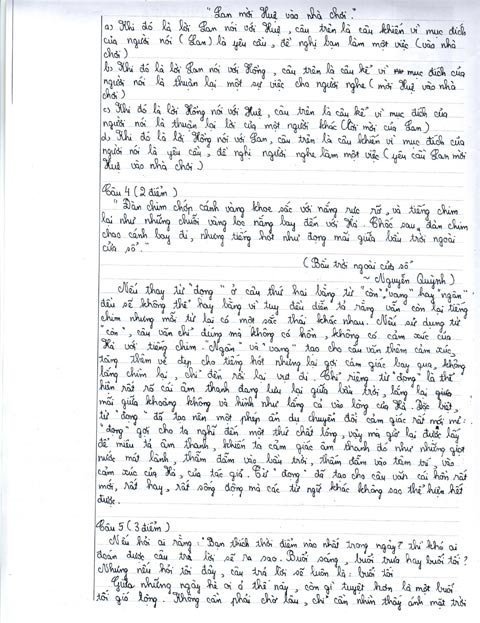 "Lan mời Huệ vào nhà chơi."
a) Khi đó là lời Lan nói với Huệ, câu trên là câu khiến vì mục đích
của người nói (Lan) là yêu cầu, đề nghị bạn làm một việc (vào nhà
chơi)
b) Khi đó là lời Lan nói với Hồng, câu trên là câu kể vì mục đích của
người nói là thuật lại một sự việc cho người nghe (mời Huệ vào nhà
chơi)
c) Khi đó là lời Hồng nói với Huệ, câu trên là câu kể vì mục đích của
người nói là thuật lại lời của một người khác (lời mời của Lan)
d) Khi đó là lời Hồng nói với Lan, câu trên là câu khiến vì mục đích của
người nói là yêu cầu, đề nghị người nghe làm một việc (yêu cầu Lan mời
Huệ vào nhà chơi)
Câu 4 (2 điểm)
"Đàn chim chớp cánh vàng khoe sắc với nắng rực rỡ, và tiếng chim
lại như những chuỗi vàng lọc nắng bay đến với Hà. Chốc sau, đàn chim
chao cánh bay đi, nhưng tiếng hót như đọng mãi giữa bầu trời ngoài
cửa sổ."
(Bầu trời ngoài cửa sổ
~ Nguyễn Quỳnh)
Nếu thay từ "đọng" ở câu thứ hai bằng từ "còn", vang hay ngân"
đều sẽ không thể hay bằng vì tuy đều diễn tả rằng vẫn còn lại tiếng
chim nhưng mỗi từ lại có một sắc thái khác nhau. Nếu sử dụng từ
"còn", câu văn chỉ đúng mà không có hồn, không có cảm xúc của
Hà với tiếng chim. "Ngân" và "vang" tạo cho câu văn thêm cảm xúc,
tăng thêm vẻ đẹp cho tiếng hót nhưng lại gợi cảm giác bay qua, không
lắng chìm lại, chỉ đến rồi lại vụt đi. Chỉ riêng từ "đọng" là thể
hiện rất rõ cái âm thanh đang lưu lại giữa bầu trời, lắng lại giữa
mãi giữa khoảng không và hình như lắng cả vào lòng của Hà. Đặc biệt,
từ "đọng" đã tạo nên một phép ẩn dụ chuyển đổi cảm giác rất mới mẻ:
"đọng" gợi cho ta nghĩ đến một thứ chất lỏng, vậy mà giờ lại được lấy
để miêu tả âm thanh, khiến ta cảm giác âm thanh đó như những giọt
nước mát lành, thấm đẫm vào bầu trời, thấm đẫm vào tâm trí, vào
cảm xúc của Hà, của tác giả. Từ "đọng" đã tạo cho câu văn cái hồn rất
mới, rất hay, rất sống động mà các từ ngữ khác không sao thể hiện hết
được.
Câu 5 (3 điểm)
Nếu hỏi ai rằng: "Bạn thích thời điểm nào nhất trong ngày? thì khó ai
đoán được câu trả lời sẽ ra sao. Buổi sáng, buổi trưa hay buổi tối?
Nhưng nếu hỏi tôi đây, câu trả lời sẽ luôn là: buổi tối
Giữa những ngày hè oi ả thế này, còn gì tuyệt hơn là một buổi
tối gió lộng. Không cần phải chờ lâu, chỉ cần nhìn thấy ánh mặt trời